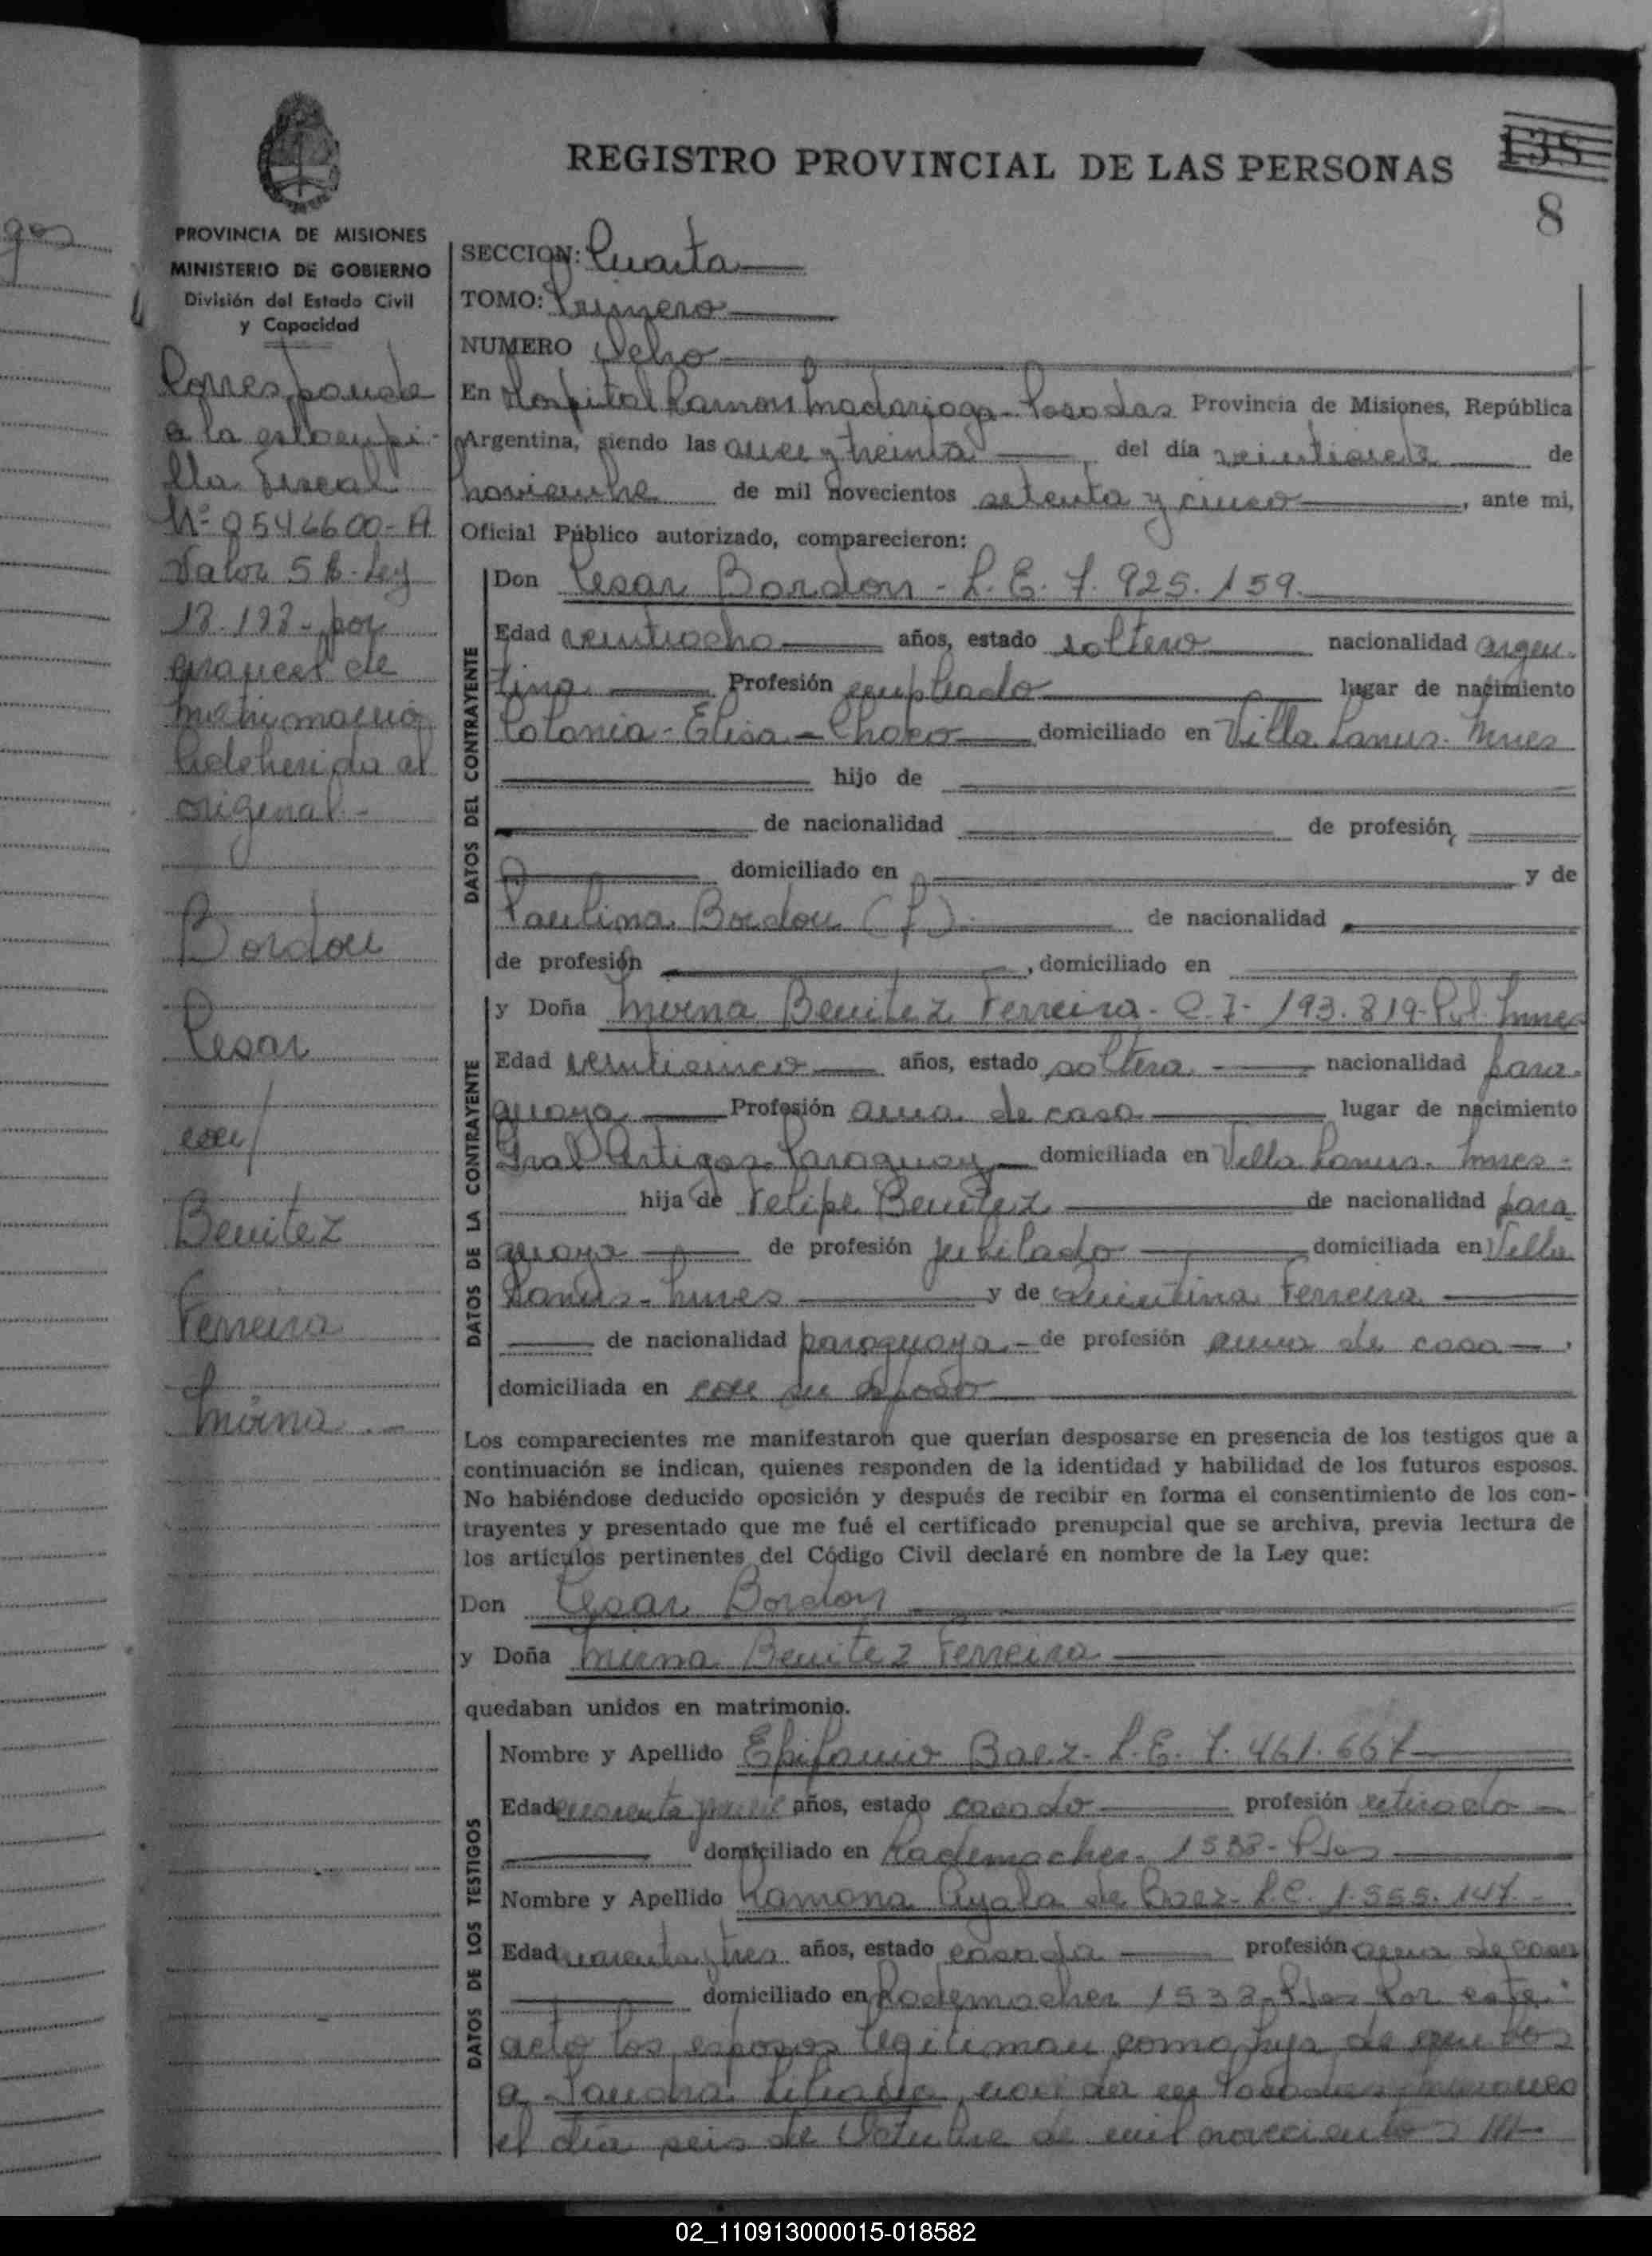 138
8
REGISTRO PROVINCIAL DE LAS PERSONAS
PROVINCIA DE MISIONES
MINISTERIO DE GOBIERNO
División del Estado Civil
y Capacidad
Corresponde
a la estampi-
lla fiscal
Nº 0546600-A
Valor 5 $ - Ley
18.188 - por
arancel de
matrimonio
Adherida al
original -
Bordon
Cesar
con/
Benitez
Ferreira
Mirna . -
SECCION: Cuarta
TOMO: Primero
NUMERO Ocho
En Hospital Ramon Madariaga - Posadas Provincia de Misiones, República
Argentina, siendo las once y treinta del día veintisiete de
noviembre de mil novecientos setenta y cinco, ante mi,
Oficial Público autorizado, comparecieron:
DATOS DEL CONTRAYENTE
Don Cesar Bordon - L. E. 7. 925. 159.
Edad veintiocho años, estado soltero nacionalidad argen-
tina Profesión empleado lugar de nacimiento
Colonia - Elisa - Chaco domiciliado en Villa Lanus - Mnes
hijo de
de nacionalidad de profesión
domiciliado en y de
Paulina Bordon (f) de nacionalidad
de profesión , domiciliado en
DATOS DE LA CONTRAYENTE
y Doña Mirna Benitez Ferreira - C. I - 193. 819 - Pol. Mnes
Edad veinticinco años, estado soltera nacionalidad para-
guaya Profesión ama de casa lugar de nacimiento
Gral Artigas - Paraguay domiciliada en Villa Lanus - Mnes -
hija de Felipe Benitez de nacionalidad para-
guaya de profesión jubilado domiciliada en Villa
Lanus - Mnes y de Quintina Ferreira
de nacionalidad paraguaya - de profesión ama de casa ,
domiciliada en con su esposo
Los comparecientes me manifestaron que querían desposarse en presencia de los testigos que a
continuación se indican, quienes responden de la identidad y habilidad de los futuros esposos.
No habiéndose deducido oposición y después de recibir en forma el consentimiento de los con-
trayentes y presentado que me fué el certificado prenupcial que se archiva, previa lectura de
los artículos pertinentes del Código Civil declaré en nombre de la Ley que:
Don Cesar Bordon
y Doña Mirna Benitez Ferreira
quedaban unidos en matrimonio.
DATOS DE LOS TESTIGOS
Nombre y Apellido Epifanio Baez - L. E. 7. 461. 667
Edad cuarenta y años, estado casado profesión retirado
domiciliado en Rademacher - 1538 - Pdas
Nombre y Apellido Ramona Ayala de Baez - L.C. 1.555. 147 -
Edad cuarenta y tres años, estado casada profesión ama de casa
domiciliado en Rademacher 1538 - Pdas Por este
acto los esposos legitiman como hija de ambos
a Liliana nacida en Posadas Misiones
el dia seis de Octubre de mil novecientos ///-
02_110913000015-018582